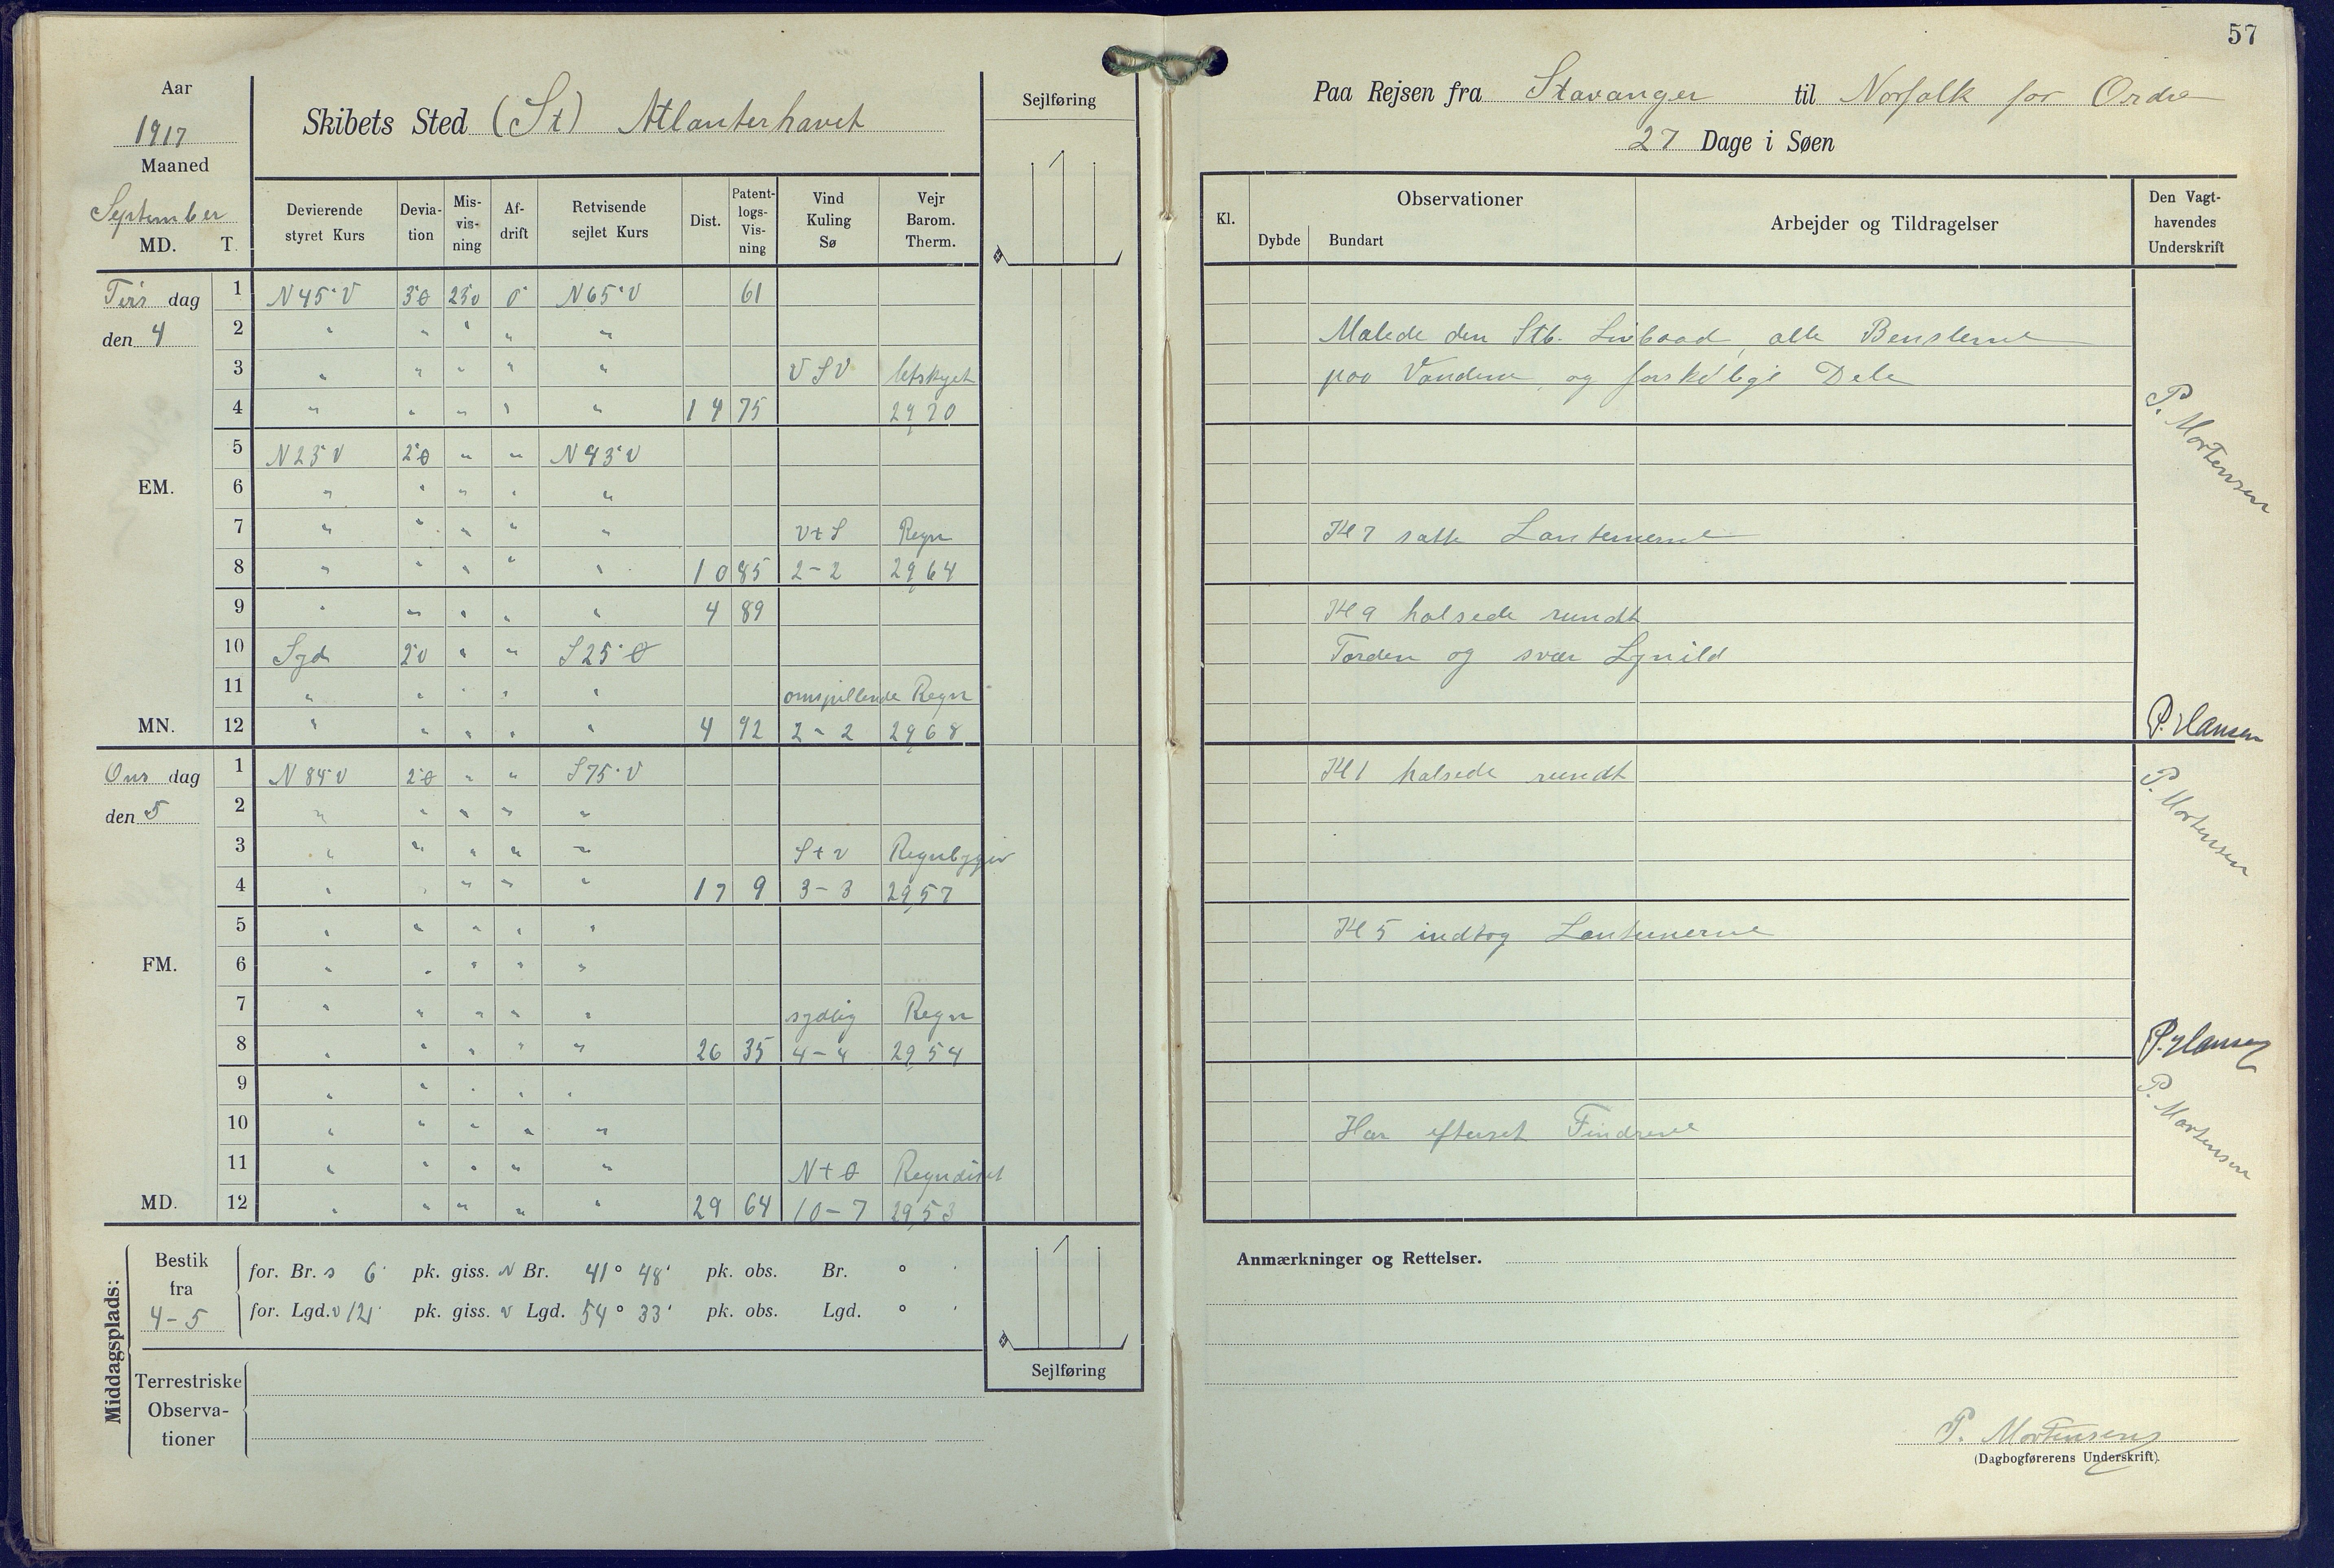 57
Aar
1917
Maaned
September
MD. T.
Skibets Sted (St) Atlanterhavet
Sejlføring
Paa Rejsen fra Stavanger til Norfolk for Ordre
27 Dage i Søen
Devierende styret Kurs
Deviation
Misvisning
Afdrift
Retvisende sejlet Kurs
Dist.
Patentlogs-Visning
Vind Kuling Sø
Vejr Barom. Therm.
Kl.
Observationer
Dybde Bundart
Arbejder og Tildragelser
Den Vagthavendes Underskrift
Tirs dag 1 N45°V 3°Ø 23°V 0° N65°V 61
den 4 2 " " " " " Malede den Stb. Livbaad, alle Benslerne
3 " " " " " VSV letskyet paa Vandene, og forskelige Dele
4 " " " " " 14 75 29,70 P. Mortensen
5 N23°V 2°Ø " " N43°V
EM. 6 " " " " "
7 " " " " " V t S Regn Kl 7 satte Lanternerne
8 " " " " " 10 85 2-2 29,64
9 " " " " " 4 89 Kl 9 halsede rundt
10 Syd 2°V " " S25°Ø Torden og svær Lynild
11 " " " " " omspillende Regn
MN. 12 " " " " " 4 92 2-2 29,68 P. Hansen
Ons dag 1 N84°V 2°Ø " " S75°V Kl 1 halsede rundt
den 5 2 " " " " " P. Mortensen
3 " " " " " S t V Regnbyger
4 " " " " " 17 9 3-3 29,57
5 " " " " " Kl 5 indtog Lanternerne
FM. 6 " " " " "
7 " " " " " sydlig Regn
8 " " " " " 26 35 4-4 29,54 P. Hansen
9 " " " " "
10 " " " " " Har efterset Findrene P. Mortensen
11 " " " " " N t Ø Regndiset
MD. 12 " " " " " 29 64 10-7 29,53
Middagsplads:
Bestik fra 4-5
for. Br. S 6' pk. giss. N Br. 41° 48' pk. obs. Br. ° '
for. Lgd. V 121' pk. giss. V Lgd. 54° 33' pk. obs. Lgd. ° '
Sejlføring
Terrestriske
Observa-
tioner
Anmærkninger og Rettelser.
P. Mortensen
(Dagbogførerens Underskrift)